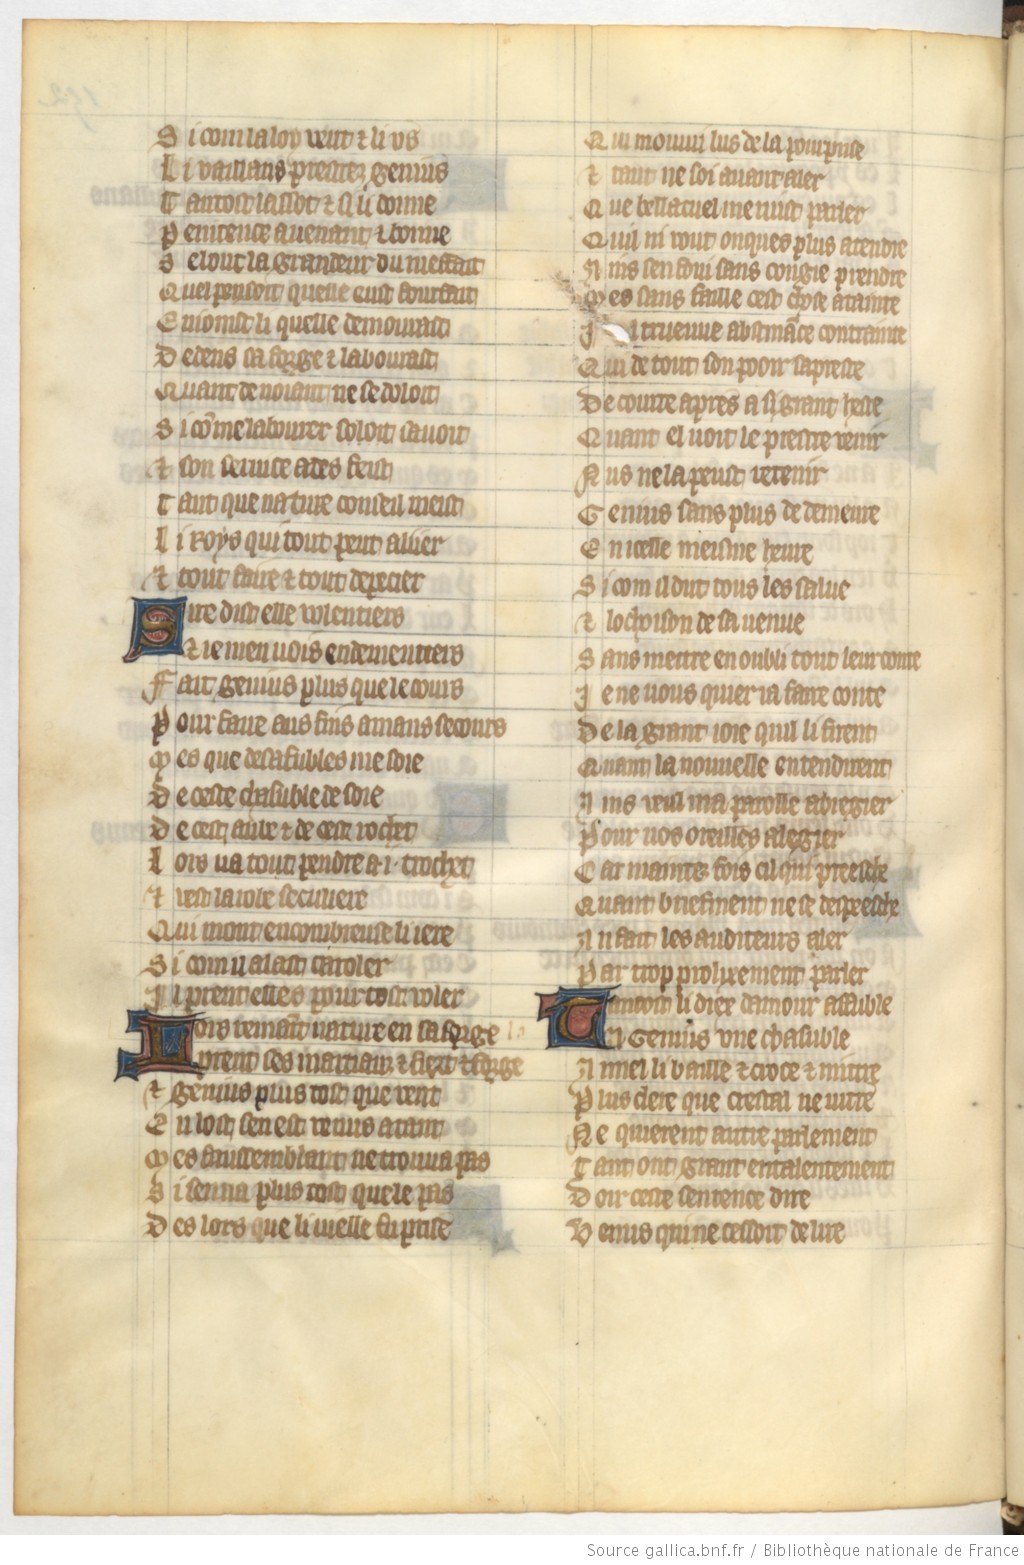 Si com la loy veut & li vs
Li vaillans prestrez genius
Tantost lassot & si li donne
Penitence auenant & bonne
Selonc la grandeur du meffait
Quel pensoit quelle eust fourfait
Eniomst li quelle demourast
Dedens sa forge & labourast
Quant de noiant ne se doloit
Si cōme labourer soloit sauoit
Et son seruice ades feist
Tant que nature conseil meist
Li roys qui tout peut aisier
Et tout faire & tout depecier
Sire dist elle volentiers
Et ie men vois endementiers
Fait genius plus que le cours
Pour faire aus fins amans secours
Mes que desafubles me soie
De ceste chasuble de soie
De cest aube & de cest rochet
Lors va tout pendre a .i. crochet
Et vest la robe seculiere
Qui mont encombreuse li iere
Si com il alast caroler
Il prent elles pour tost voler
Lors remaīt nature en sa forge
Prent ses martiaux & fiert & forge
Et genius plus tost que vent
En lost sen est venus atant
Mes faussemblant ne trouua pas
Si senna plus tost que le pas
Des lors que li vielle fu prise
Qui mouuri lus de la pourprise
Et tant ne soi auant aler
Que bellacuel me nuist parler
Quil ni vout onques plus atendre
Ains sen foui sans congie prendre
Mes sans faille cest chose atainte
Il trueuue abstināce contrainte
Qui de tout son pooir sapreste
De courre apres a si grant heste
Quant el voit le prestre venir
Nus ne la peust retenir
Genius sans plus de demeure
En icelle meisme heure
Si com il dut tous les salue
Et lochoison de sa venue
Sans mettre en oubli tout leur conte
Je ne vous quier ia faire conte
De la grant ioie quil li firent
Quant la nouuelle entendirent
Ains veil ma parolle abregier
Pour vos oreilles alegier
Car maintez fois cil qui preesche
Quant briefment ne se despeesche
An fait les auditeurs aler
Par trop prolixement parler
Tantost li diex damour affuble
A Genius vne chasuble
Annel li baille & croce & mittre
Plus clere que crestal ne vittre
Ne quierent autre parlement
Tant ont grant entalentement
Doir ceste sentence dire
Venus qui ne cessoit de lire
Source gallica.bnf.fr / Bibliothèque nationale de France